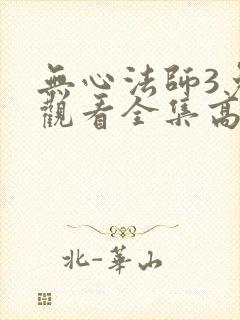 無心法師3
觀看全集高
北-華山